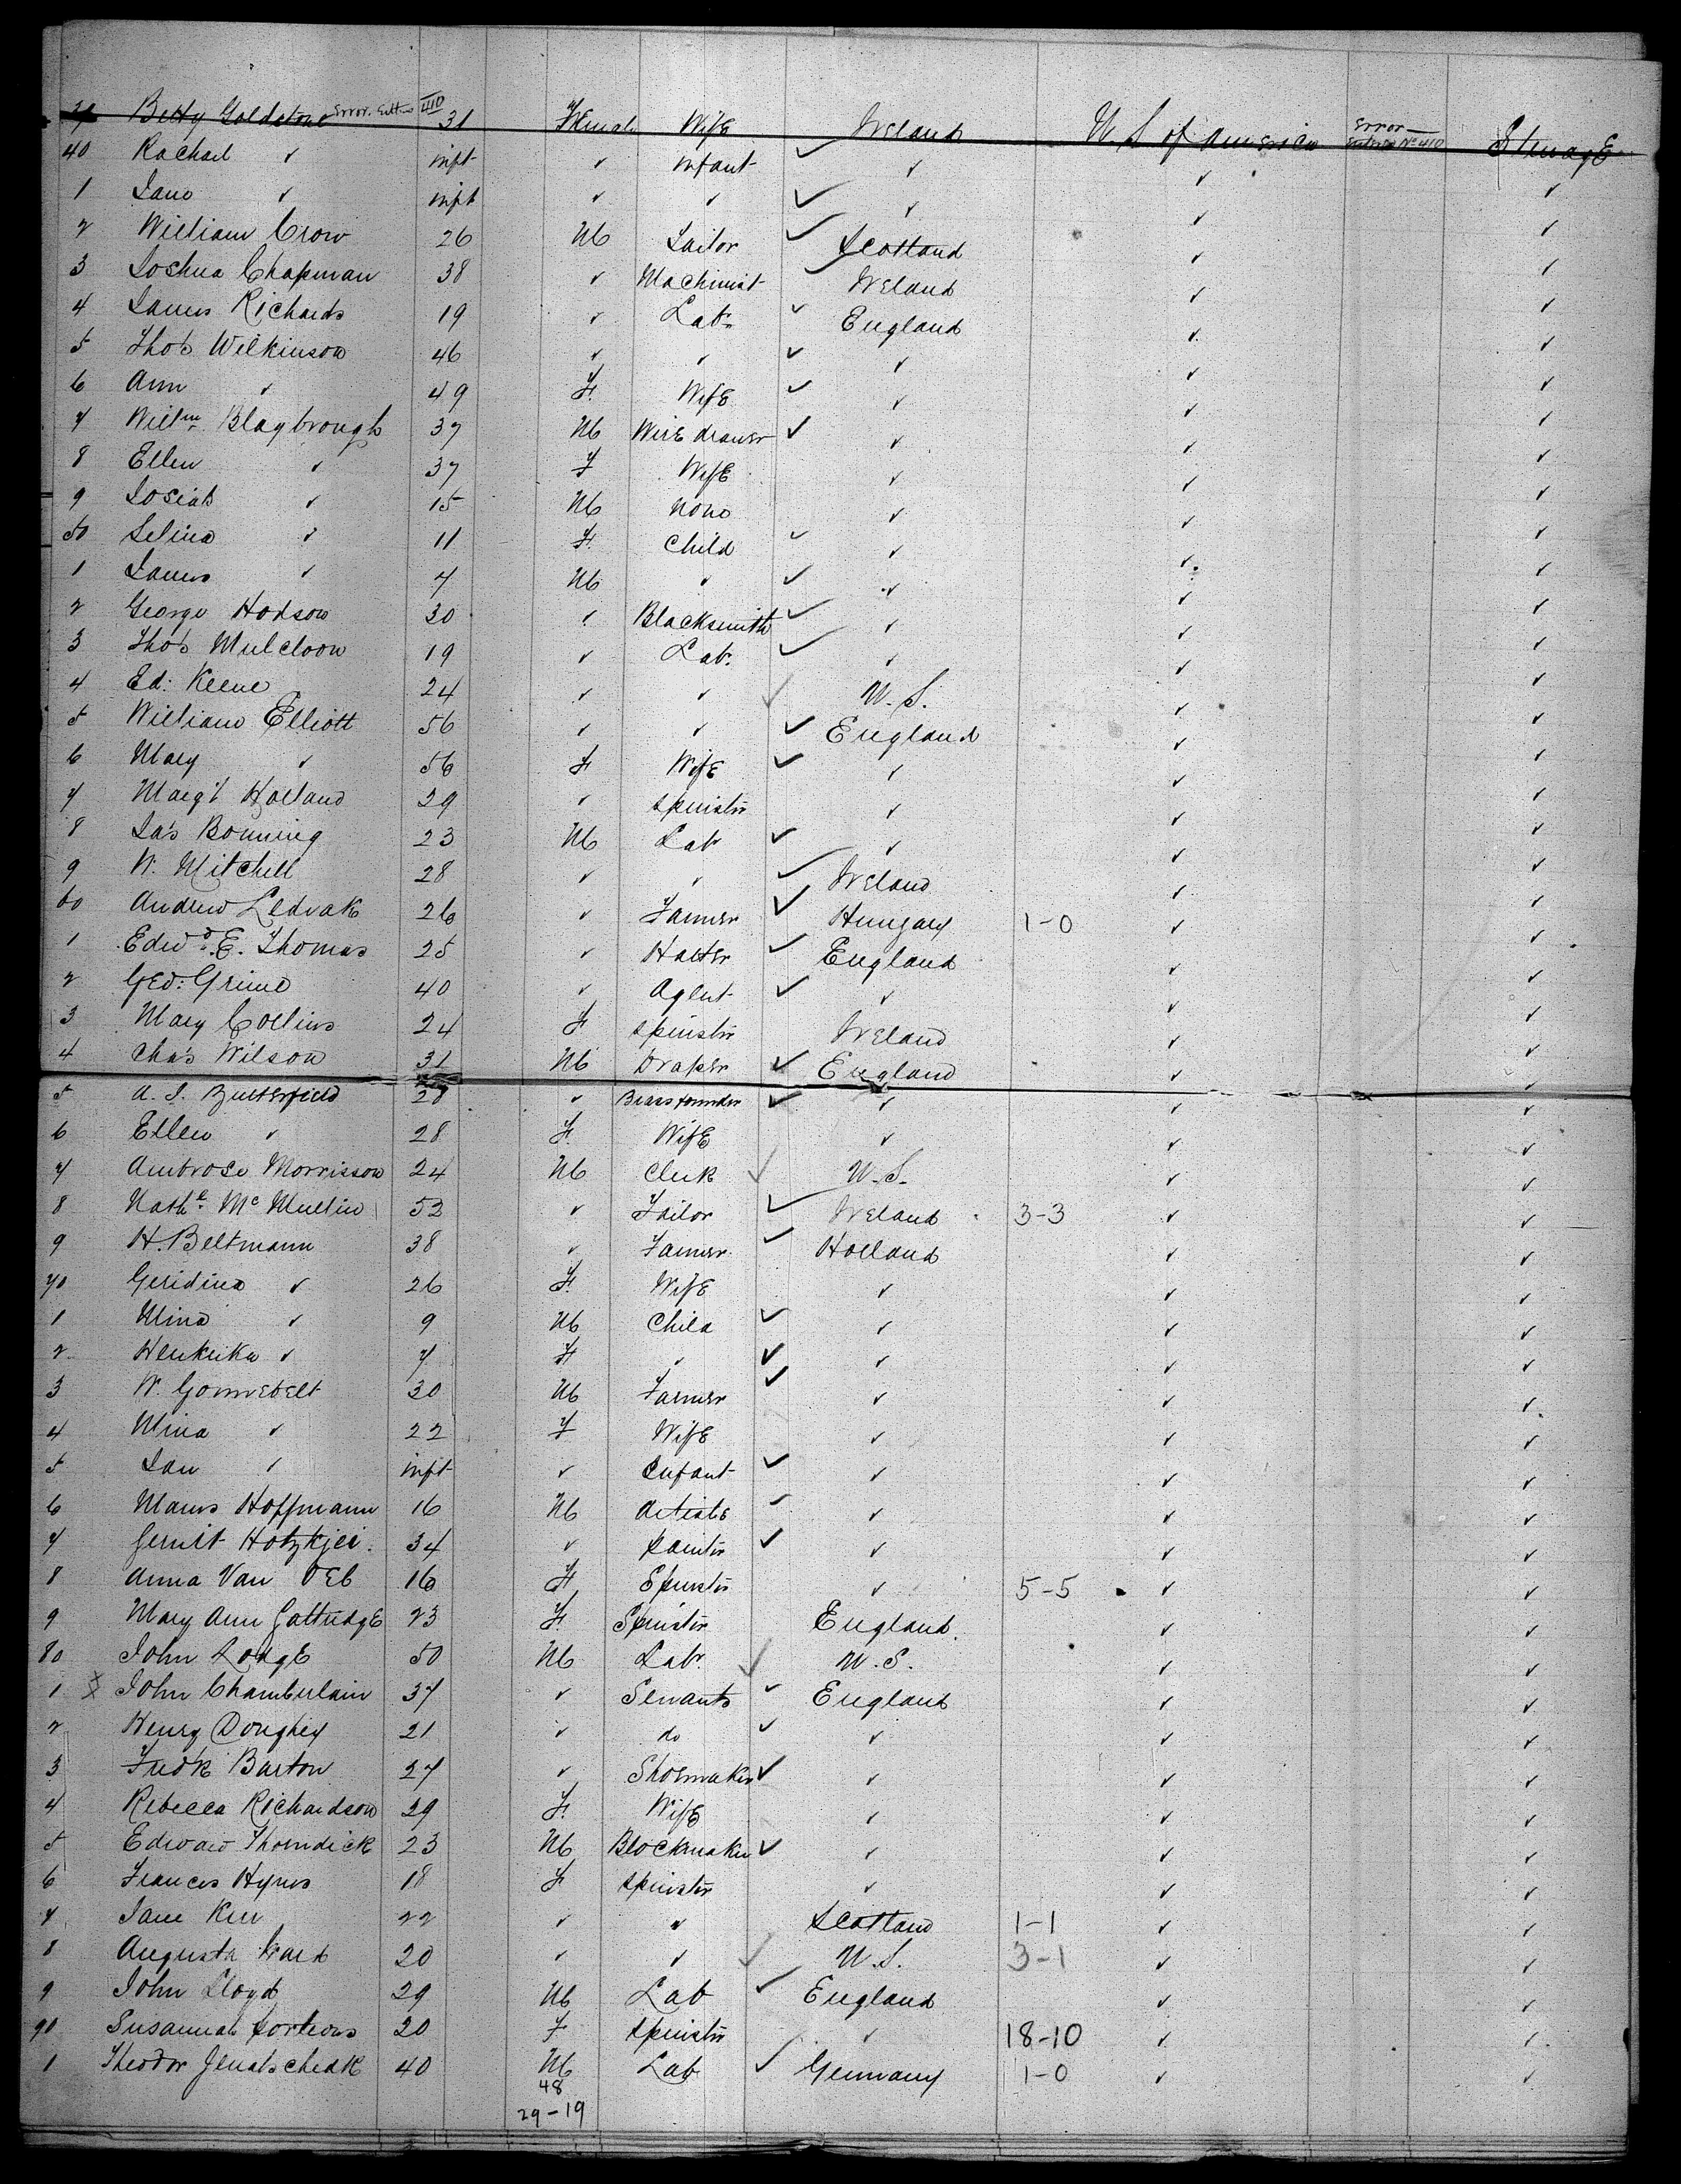 39 Betty Goldstone Error. Entd 410 31 Female Wife Ireland U. S of America Error Entered No 410 Steerage
40 Rachael ✓ inft ✓ infant ✓ ✓ ✓ ✓
1 Jane ✓ inft ✓ ✓ ✓ ✓ ✓ ✓
2 William Crow 26 M Sailor ✓ Scotland ✓ ✓
3 Joshua Chapman 38 ✓ Machinist ✓ Ireland ✓ ✓
4 James Richards 19 ✓ Labr ✓ England ✓ ✓
5 Thos Wilkinson 46 ✓ ✓ ✓ ✓ ✓ ✓
6 Ann ✓ 49 F. Wife ✓ ✓ ✓ ✓
7 Willm Blaybrough 37 M Wire drawer ✓ ✓ ✓ ✓
8 Ellen ✓ 37 F Wife ✓ ✓ ✓
9 Josiah ✓ 15 M None ✓ ✓ ✓
50 Selina ✓ 11 F. Child ✓ ✓ ✓ ✓
1 James ✓ 7 M ✓ ✓ ✓ ✓ ✓
2 George Hodson 30 ✓ Blacksmith ✓ ✓ ✓ ✓
3 Thos Mulcloon 19 ✓ Labr ✓ ✓ ✓ ✓
4 Ed: Keene 24 ✓ ✓ ✓ U. S. ✓ ✓
5 William Elliott 56 ✓ ✓ ✓ England ✓ ✓
6 Mary ✓ 56 F Wife ✓ ✓ ✓ ✓
7 Marg't Holland 29 ✓ Spinster ✓ ✓ ✓
8 Jas Bonning 23 M Labr ✓ ✓ ✓ ✓
9 W. Mitchell 28 ✓ ✓ ✓ Ireland ✓ ✓
60 Andrew Ledvak 26 ✓ Farmer ✓ Hungary 1-0 ✓ ✓
1 Edwd. E. Thomas 25 ✓ Hatter ✓ England ✓ ✓
2 Geo: Grime 40 ✓ Agent ✓ ✓ ✓ ✓
3 Mary Collins 24 F Spinster Ireland ✓ ✓
4 Chas Wilson 31 M Draper ✓ England ✓ ✓
5 A. S. Butterfield 28 ✓ Brassfounder ✓ ✓ ✓ ✓
6 Ellen ✓ 28 F. Wife ✓ ✓ ✓
7 Ambrose Morrisson 24 M Clerk ✓ U. S. ✓ ✓
8 Nathl Mc Mullin 52 ✓ Tailor ✓ Ireland 3-3 ✓ ✓
9 H. Beltmann 38 ✓ Farmer ✓ Holland ✓ ✓
70 Geridina ✓ 26 F. Wife ✓ ✓ ✓
1 Mina ✓ 9 M Child ✓ ✓ ✓ ✓
2 Henkrika ✓ 7 F ✓ ✓ ✓ ✓ ✓
3 W. Gonnebelt 30 M Farmer ✓ ✓ ✓ ✓
4 Mina ✓ 22 F Wife ✓ ✓ ✓
5 Jan ✓ inft ✓ Infant ✓ ✓ ✓ ✓
6 Manus Hoffmann 16 M Artiste ✓ ✓ ✓ ✓
7 Gerrit Hotzkjei. 34 ✓ Painter ✓ ✓ ✓ ✓
8 Anna Van 16 F Spinster ✓ 5-5 ✓ ✓
9 Mary Ann Gattridge 23 F. Spinster England. ✓ ✓
80 John Lodge 50 M Labr. ✓ U. S. ✓ ✓
1 X John Chamberlain 37 ✓ Servants ✓ England ✓ ✓
2 Henry Doughey 21 ✓ do ✓ ✓ ✓ ✓
3 Fredk Barton 27 ✓ Shoemaker ✓ ✓ ✓ ✓
4 Rebecca Richardson 29 F. Wife ✓ ✓ ✓
5 Edward Thorndick 23 M Blockmaker ✓ ✓ ✓ ✓
6 Frances Hynes 18 F Spinster ✓ ✓ ✓
7 Jane Kerr 22 ✓ ✓ Scotland 1-1 ✓ ✓
8 Augusta Ward 20 ✓ ✓ ✓ U. S. 3-1 ✓ ✓
9 John Lloyd 29 M Lab ✓ England ✓ ✓
90 Susannah Porteous 20 F Spinster ✓ 18-10 ✓ ✓
1 Theodor 40 M Lab ✓ Germany 1-0 ✓ ✓
48
29-19